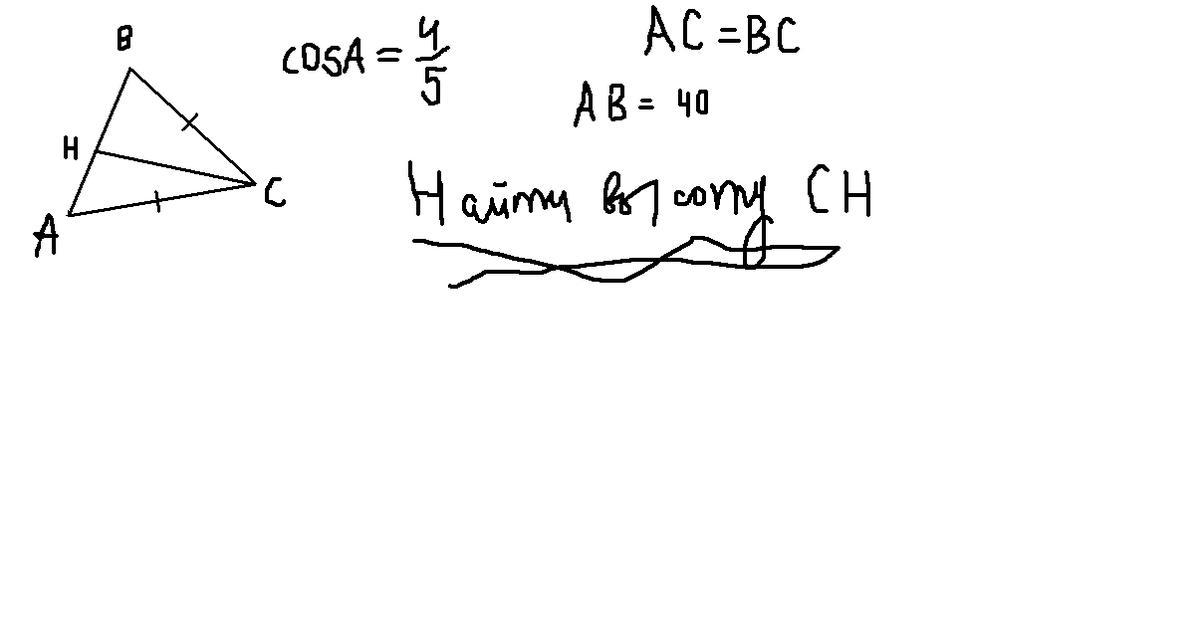 B
cosA = 4/5
AC = BC
AB = 40
H
C
A
Найти высоту CH